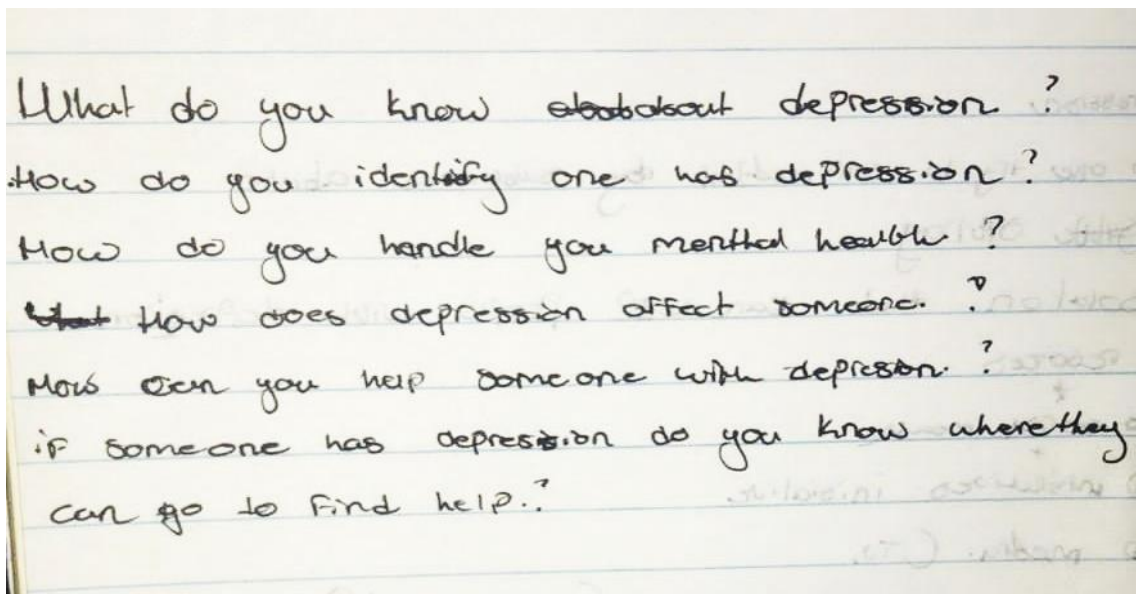 What do you know about depression ?
How do you identify one has depression ?
How do you handle you menthal health ?
How does depression affect someone. ?
How can you help someone with depression. ?
if someone has depression do you know where they
can go to find help. ?